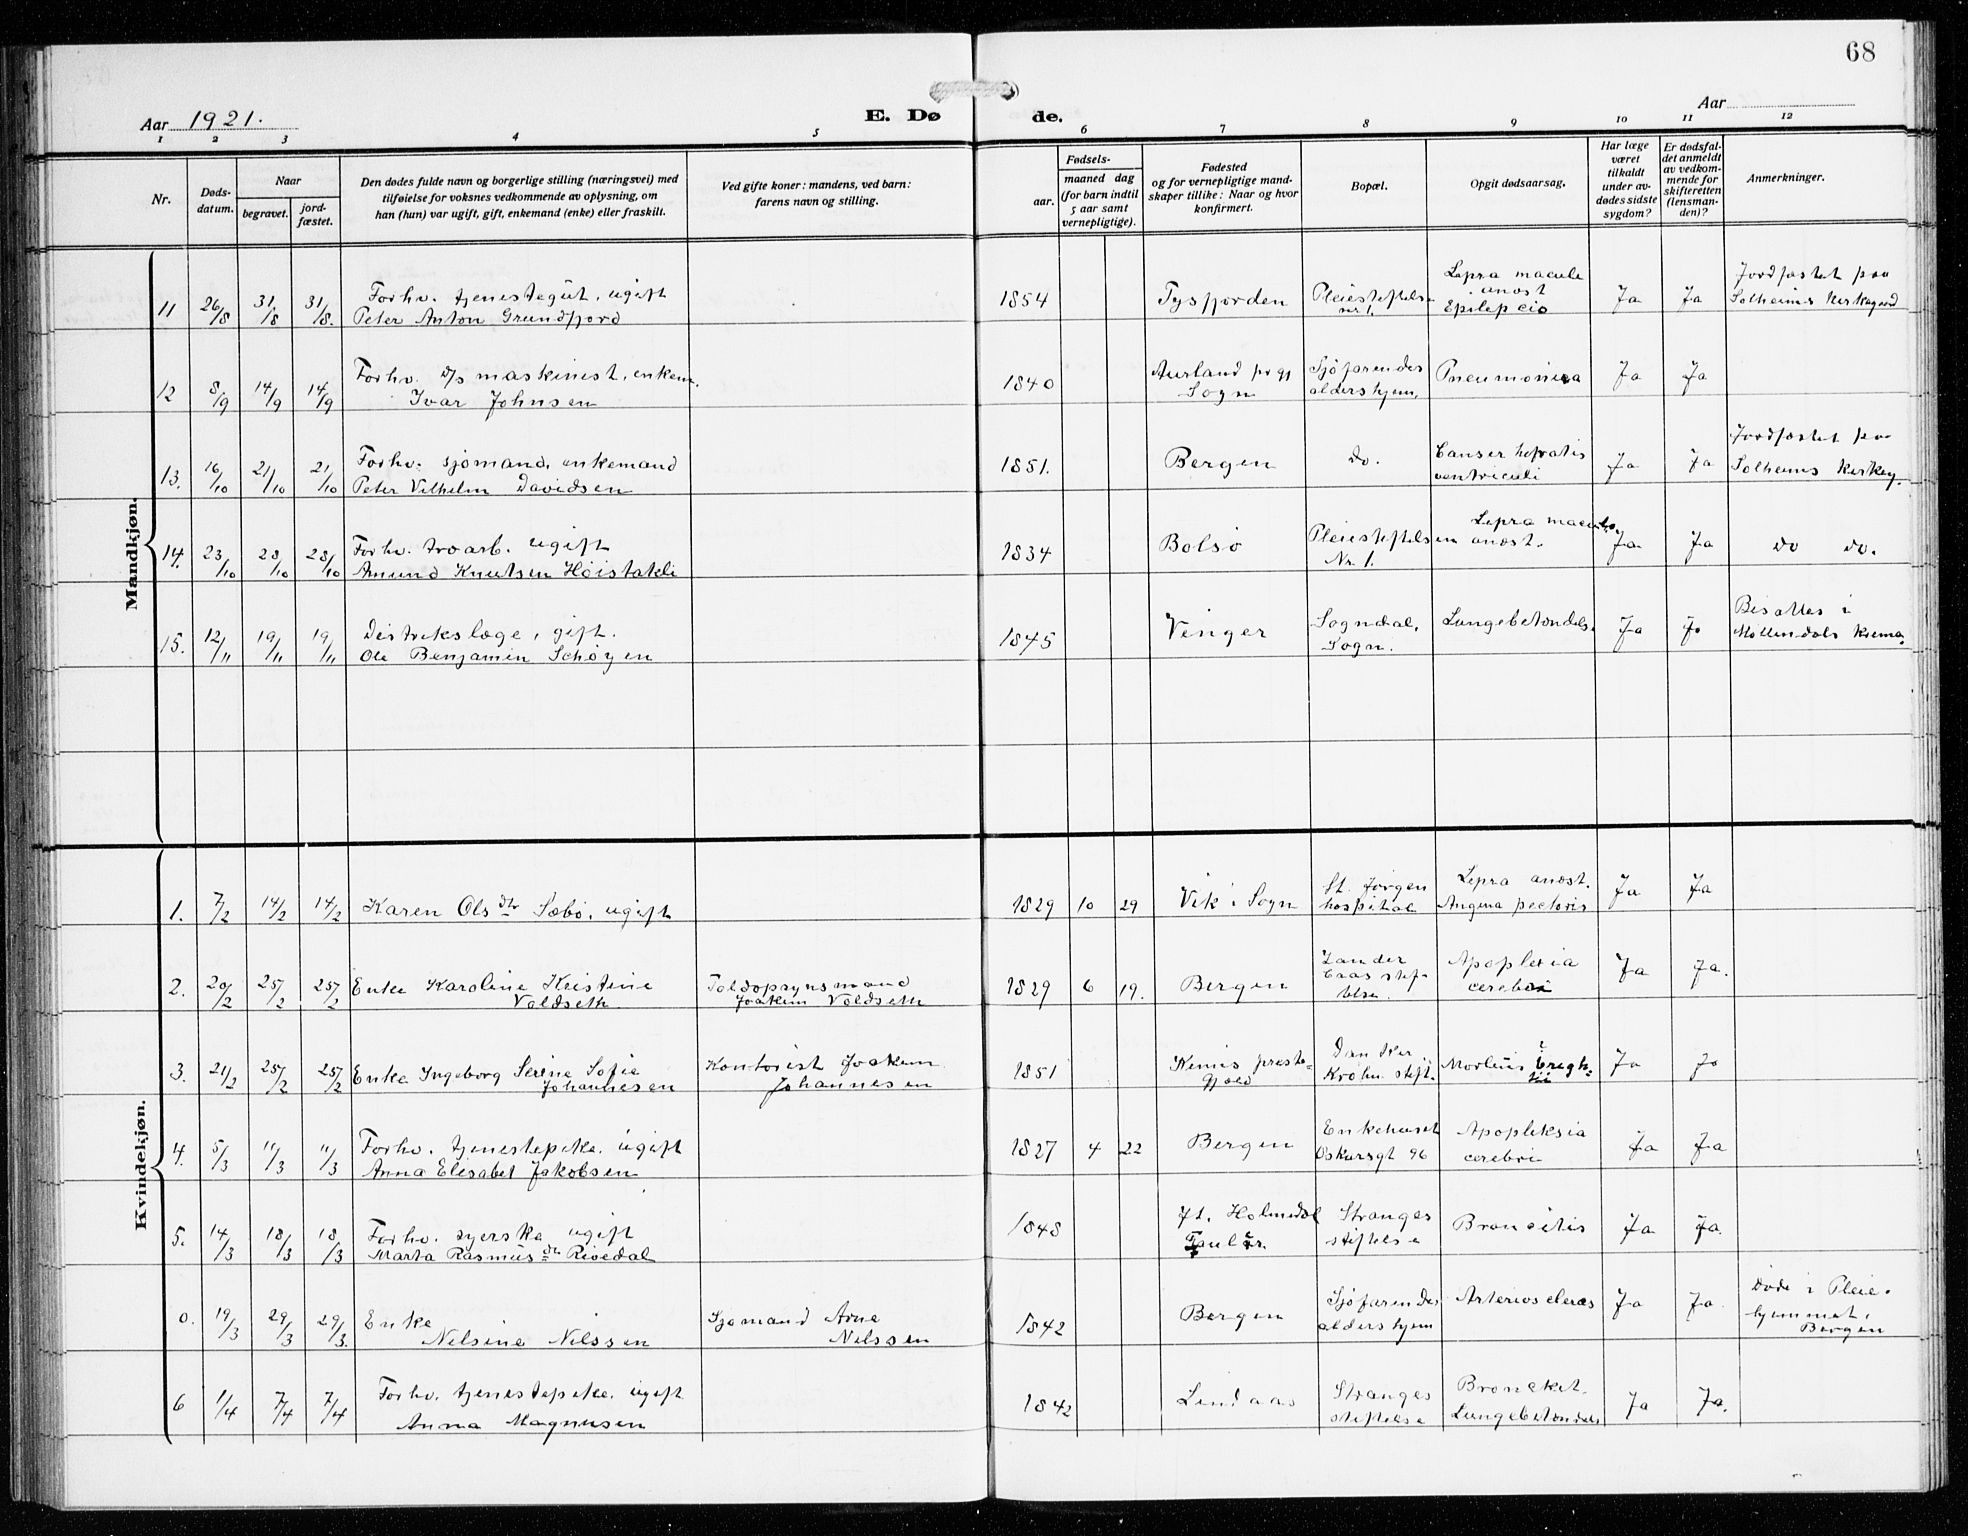 68
Aar 1921.
E. Dø de.
Aar
1 2 3 4 5 6 7 8 9 10 11 12
Nr.
Døds-
datum.
Naar
begravet.
jord-
fæstet.
Den dødes fulde navn og borgerlige stilling (næringsvei) med
tilføielse for voksnes vedkommende av oplysning, om
han (hun) var ugift, gift, enkemand (enke) eller fraskilt.
Ved gifte koner: mandens, ved barn:
farens navn og stilling.
Fødsels-
aar.
maaned dag
(for barn indtil
5 aar samt
vernepligtige).
Fødested
og for vernepligtige mand-
skaper tillike: Naar og hvor
konfirmert.
Bopæl.
Opgit dødsaarsag.
Har læge
været
tilkaldt
under av-
dødes sidste
sygdom?
Er dødsfal-
det anmeldt
av vedkom-
mende for
skifteretten
(lensman-
den)?
Anmerkninger.
Mandkjøn.
11 26/8 31/8 31/8. Forhv. tjenestegut, ugift
Peter Anton Grundfjord
1854 Tysfjorden Pleiestiftelse
nr 1.
Lepra macule
anæst
Epilepcio
Ja Ja Jordfæstet paa
Solheims Kirkegaard
12 8/9 14/9 14/9 Forhv. d/s maskinist, enkem.
Ivar Johnsen
1840 Aurland prgj
Sogn
Sjøfarendes
aldershjem,
Pneumonica Ja Ja
13. 16/10 21/10 21/10 Forhv. sjømand, enkemand
Peter Vilhelm Davidsen
1851. Bergen do. Canser hepatis
ventriculi
Ja Ja Jordfæstet paa
Solheims Kirkeg.
14. 23/10 28/10 28/10 Forhv. troarb. ugift
Amund Knutsen Höistakli
1834 Bolsö Pleiestiftelsen
Nr. 1.
Lepra maculo
anæst.
Ja Ja do do.
15. 12/11 19/11 19/11 Distrikslæge, gift.
Ole Benjamin Schöyen
1845 Vinger Sogndal,
Sogn.
Lungebetændels. Ja Ja Bisattes i
Möllendals Krema.
Kvindekjøn.
1. 7/2 14/2 14/2 Karen Olsdtr Sæbö, ugift
1829 10 29 Vik i Sogn St. Jörgen
hospital
Lepra anæst.
Angina pectoris
Ja Ja
2. 20/2 25/2 25/2 Enke Karoline Kristine
Voldseth
Toldopsynsmand
Joakim Voldseth
1829 6 19. Bergen Zander
Caas stif-
telse.
Apoplexia
cerebri
Ja Ja.
3. 21/2 25/2 25/2 Enke Ingeborg Serine Sofie
Johannesen
Kontorist Joakim
Johannesen
1851 Kinns preste-
gjæld
Danker
Krohn stift.
Morbus Brigh-
tii
Ja Ja
4. 5/3 11/3 11/3 Forhv. tjenestepike, ugift
Anna Elisabet Jakobsen
1827 4 22 Bergen Enkehuset
Oskarsgt 96
Apopleksia
cerebri
Ja Ja
5. 14/3 18/3 18/3 Forhv. syerske ugift
Marta Rasmusdtr Rivedal
1848 Yt. Holmedal Stranges
stiftelse
Broncitis Ja Ja.
0. 19/3 29/3 29/3. Enke
Nilsine Nilssen
Sjømand Arne
Nilssen
1842 Bergen Sjøfarendes
aldershjem
Arterioscleros Ja Ja. Döde i Pleie-
hjemmet,
Bergen
6 1/4 7/4 7/4 Forhv. tjenestepike, ugift
Anna Magnusen
1842 Lindaas Stranges
stiftelse
Bronckit.
Lungebetændels
Ja Ja.